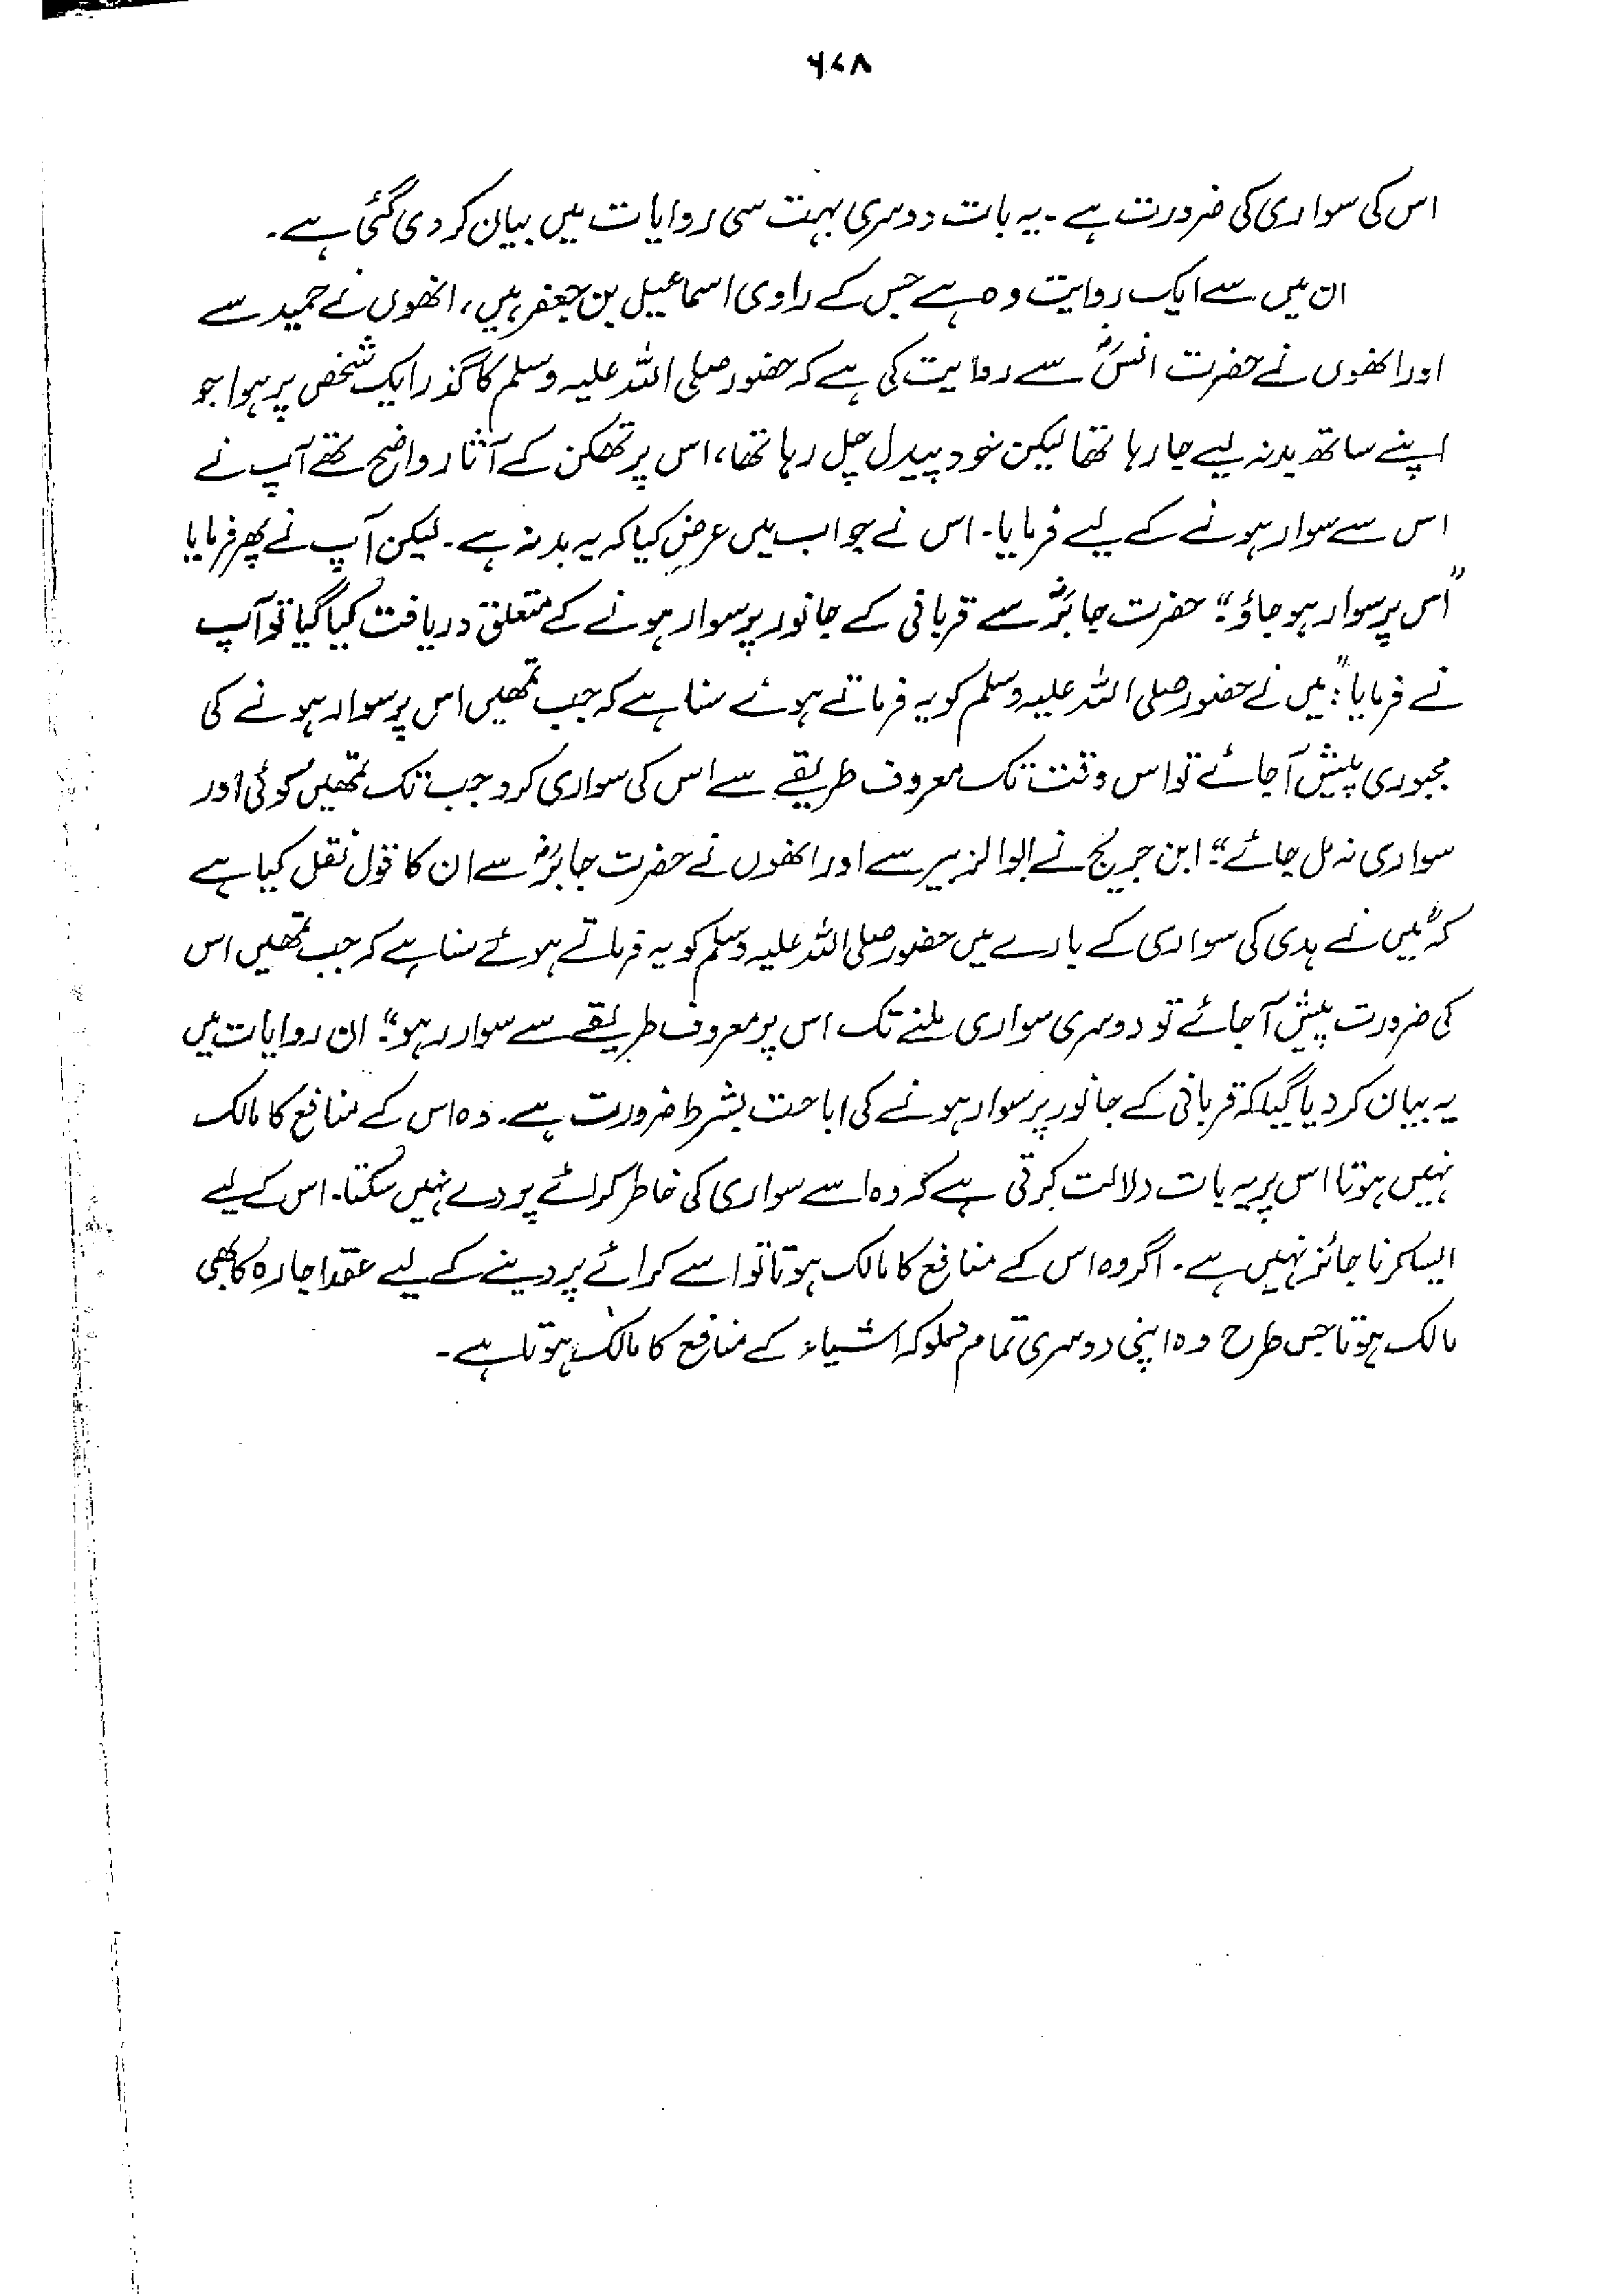 ۶۷۸
اس کی سواری کی ضرورت ہے۔ یہ بات دوسری بہت سی روایات میں بیان کر دی گئی ہے۔
ان میں سے ایک روایت وہ ہے جس کے راوی اسماعیل بن جعفر ہیں، انھوں نے حمید سے
اور انھوں نے حضرت انسؓ سے روایت کی ہے کہ حضور صلی اللہ علیہ وسلم کا گذر ایک شخص پر ہوا جو
اپنے ساتھ بدنہ لیے جا رہا تھا لیکن خود پیدل چل رہا تھا، اس پر تھکن کے آثار واضح تھے آپ نے
اس سے سوار ہونے کے لیے فرمایا۔ اس نے جواب میں عرض کیا کہ یہ بدنہ ہے۔ لیکن آپ نے پھر فرمایا
”اس پر سوار ہو جاؤ“؛ حضرت جابرؓ سے قربانی کے جانور پر سوار ہونے کے متعلق دریافت کیا گیا تو آپ
نے فرمایا: ”میں نے حضور صلی اللہ علیہ وسلم کو یہ فرماتے ہوئے سنا ہے کہ جب تمھیں اس پر سوار ہونے کی
مجبوری پیش آجائے تو اس وقت تک معروف طریقے سے اس کی سواری کرو جب تک تمھیں کوئی اور
سواری نہ مل جائے“؛ ابن جریج نے ابوالزبیر سے اور انھوں نے حضرت جابرؓ سے ان کا قول نقل کیا ہے
کہ ”میں نے ہدی کی سواری کے بارے میں حضور صلی اللہ علیہ وسلم کو یہ فرماتے ہوئے سنا ہے کہ جب تمھیں اس
کی ضرورت پیش آجائے تو دوسری سواری ملنے تک اس پر معروف طریقے سے سوار رہو“؛ ان روایات میں
یہ بیان کر دیا گیا کہ قربانی کے جانور پر سوار ہونے کی اباحت بشرط ضرورت ہے۔ وہ اس کے منافع کا مالک
نہیں ہوتا اس پر یہ بات دلالت کرتی ہے کہ وہ اسے سواری کی خاطر کرائے پر دے نہیں سکتا۔ اس کے لیے
ایسا کرنا جائز نہیں ہے۔ اگر وہ اس کے منافع کا مالک ہوتا تو اسے کرائے پر دینے کے لیے عقد اجارہ کا بھی
مالک ہوتا جس طرح وہ اپنی دوسری تمام مملوکہ اشیاء کے منافع کا مالک ہوتا ہے۔